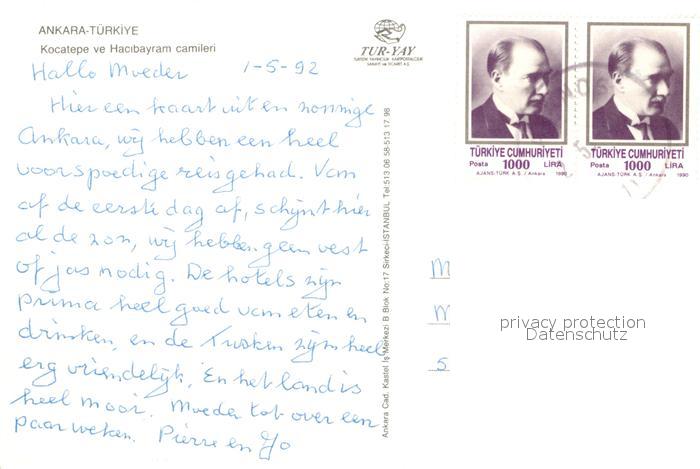 ANKARA-TÜRKİYE
Kocatepe ve Hacıbayram camileri
TUR-YAY
Hallo Moeder 1-5-92
Hier een kaart uit en zonnige
Ankara, wij hebben een heel
voorspoedige reis gehad. Van
af de eerste dag af, schijnt hier
al de zon, wij hebben geen vest
of jas nodig. De hotels zijn
prima heel goed van eten en
drinken, en de Turken zijn heel
erg vriendelijk, En het land is
heel mooi. Moeder tot over een
paar weken. Pierre en Jo
Ankara Cad. Kastel İş Merkezi B Blok No:17 Sirkeci-İSTANBUL Tel 513 06 58-513 17 98
TÜRKİYE CUMHURİYETİ
Posta 1000 LİRA
AJANS-TÜRK A.Ş. / Ankara 1990
TÜRKİYE CUMHURİYETİ
Posta 1000 LİRA
AJANS-TÜRK A.Ş. / Ankara 1990
M
M
5
privacy protection
Datenschutz